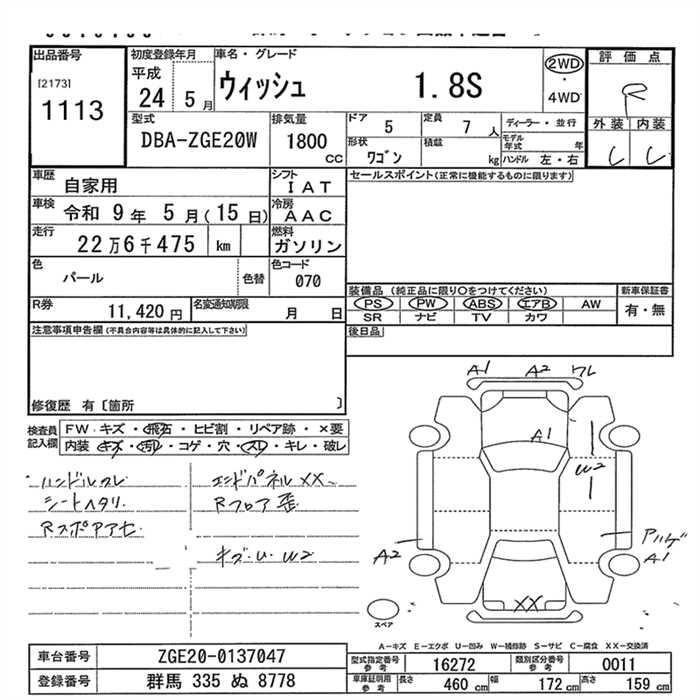 出品番号
[2173]
1113
初度登録年月
平成
24 5 月
車名・グレード
ウィッシュ 1.8S
2WD
・
4WD
評価点
R
外装 内装
型式
DBA-ZGE20W
排気量
1800
CC
ドア
5
定員
7 人
ディーラー・並行
形状
ワゴン
積載
kg
モデル年式 年
ハンドル 左・右
車歴
自家用
シフト
IAT
車検
令和 9 年 5 月(15 日)
冷房
AAC
走行
22 万 6 千 475 km
燃料
ガソリン
色
パール
色替
色コード
070
R券
11,420 円
名変通知期限
月 日
セールスポイント(正常に機能するものに限ります)
装備品(純正品に限り○をつけてください)
新車保証書
PS PW ABS エアB AW
SR ナビ TV カワ
有・無
後日品
注意事項申告欄(不具合内容等は具体的に記入して下さい)
修復歴 有〔箇所 〕
検査員記入欄
FW キズ・飛石・ヒビ割・リペア跡・×要
内装 キズ・汚レ・コゲ・穴・スレ・キレ・破レ
ハンドルスレ
シートヘタリ
Rスポアアセ
エンドパネルXX
Rフロア歪
キズ・U・W2
A1 A2 ワレ
A1
W2
A2
アルゲ
A1
XX
スペア
A-キズ E-エクボ U-凹み W-補修跡 S-サビ C-腐食 XX-交換済
車台番号
ZGE20-0137047
登録番号
群馬 335 ぬ 8778
型式指定番号
参考
16272
類別区分番号
参考
0011
車庫証明用
参考
長さ
460 cm
幅
172 cm
高さ
159 cm